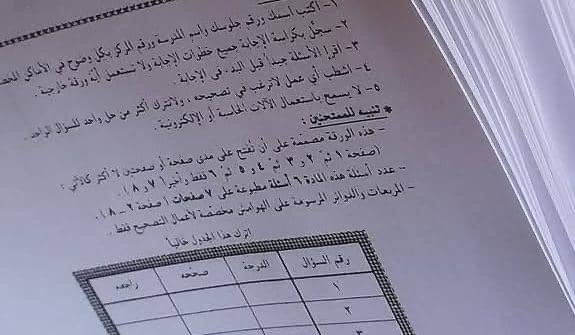 ١- اكتب اسمك ورقم جلوسك واسم المدرسة ورقم المركز بكل وضوح في الأماكن
٢- سجل بكراسة الإجابة جميع خطوات الإجابة ولا تستعمل أية ورقة خارجية .
٣- اقرأ الأسئلة جيداً قبل البدء في الإجابة .
٤- اشطب أي عمل لا ترغب في تصحيحه ، ولا تترك أكثر من حل واحد للسؤال الواحد .
٥- لا يسمح باستعمال الآلات الحاسبة أو الإلكترونية .
* تنبيه للممتحنين :
- هذه الورقة مصممة على أن تفتح على مدى صفحة أو صفحتين لا أكثر كالآتي :
(صفحة ١ ثم ٢ و ٣ ثم ٤ و ٥ ثم ٦ فقط وأخيرا ٧ و ٨) .
- عدد أسئلة هذه المادة ٦ أسئلة مطبوعة على ٧ صفحات (صفحة ٢ - ٨) .
- المربعات والدوائر المرسومة على الهوامش مخصصة لأعمال التصحيح فقط .
اترك هذا الجدول خالياً
رقم السؤال الدرجة صححه راجعه
١
٢
٣